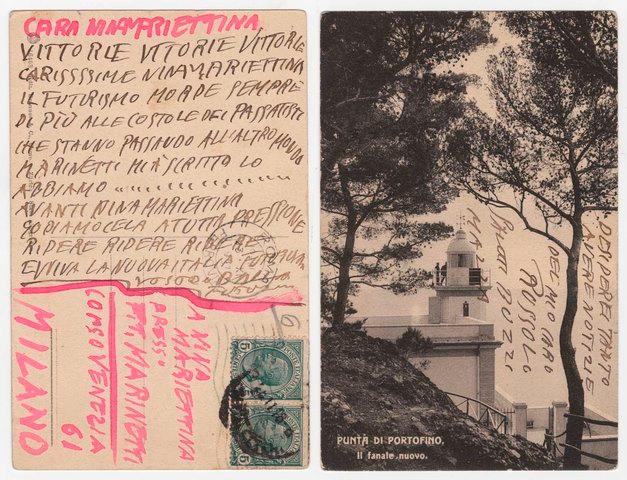 CARA NINAMARIETTINA
VITTORIE VITTORIE VITTORIE
CARISSSIME NINAMARIETTINA
IL FUTURISMO MORDE SEMPRE
DI PIÙ ALLE COSTOLE DEI PASSATISTI
CHE STANNO PASSANDO ALL'ALTRO MONDO
MARINETTI MI A SCRITTO LO
ABBIAMO
AVANTI NINA MARIETTINA
GODIAMOCELA A TUTTA PRESSIONE
RIDERE RIDERE RIDERE
EVVIVA LA NUOVA ITALIA FUTURISTA
BALLA
A NINA
MARIETTINA
PRESSO
F.T. MARINETTI
CORSO VENEZIA
61
MILANO
5
5
DESIDERO TANTO
AVERE NOTIZIE
DEL MIO CARO
RUSSOLO
BUZZI
PUNTA DI PORTOFINO.
Il fanale nuovo.